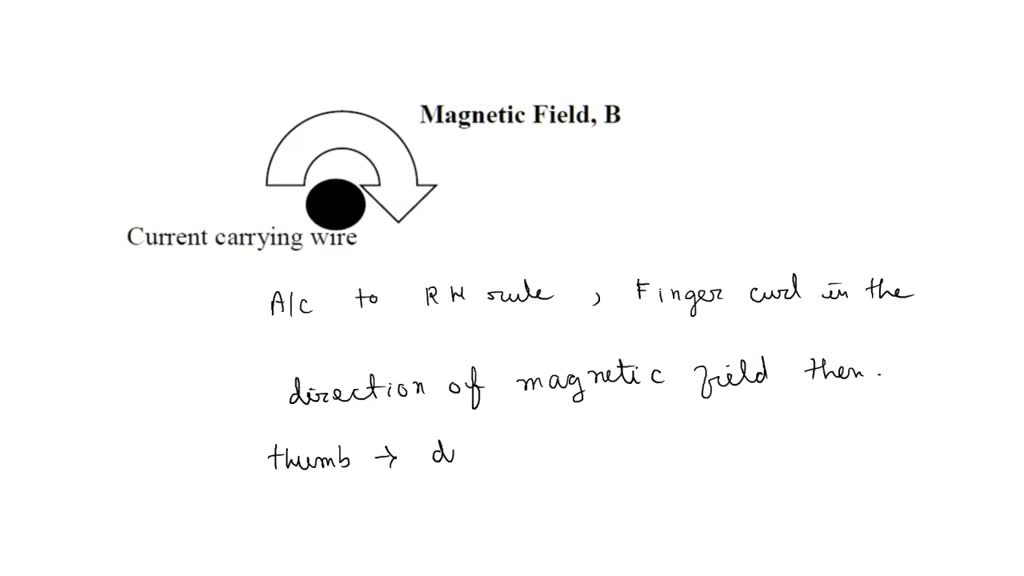 Magnetic Field, B
Current carrying wire
A/c to RH rule, Finger curl in the
direction of magnetic field then.
thumb → d